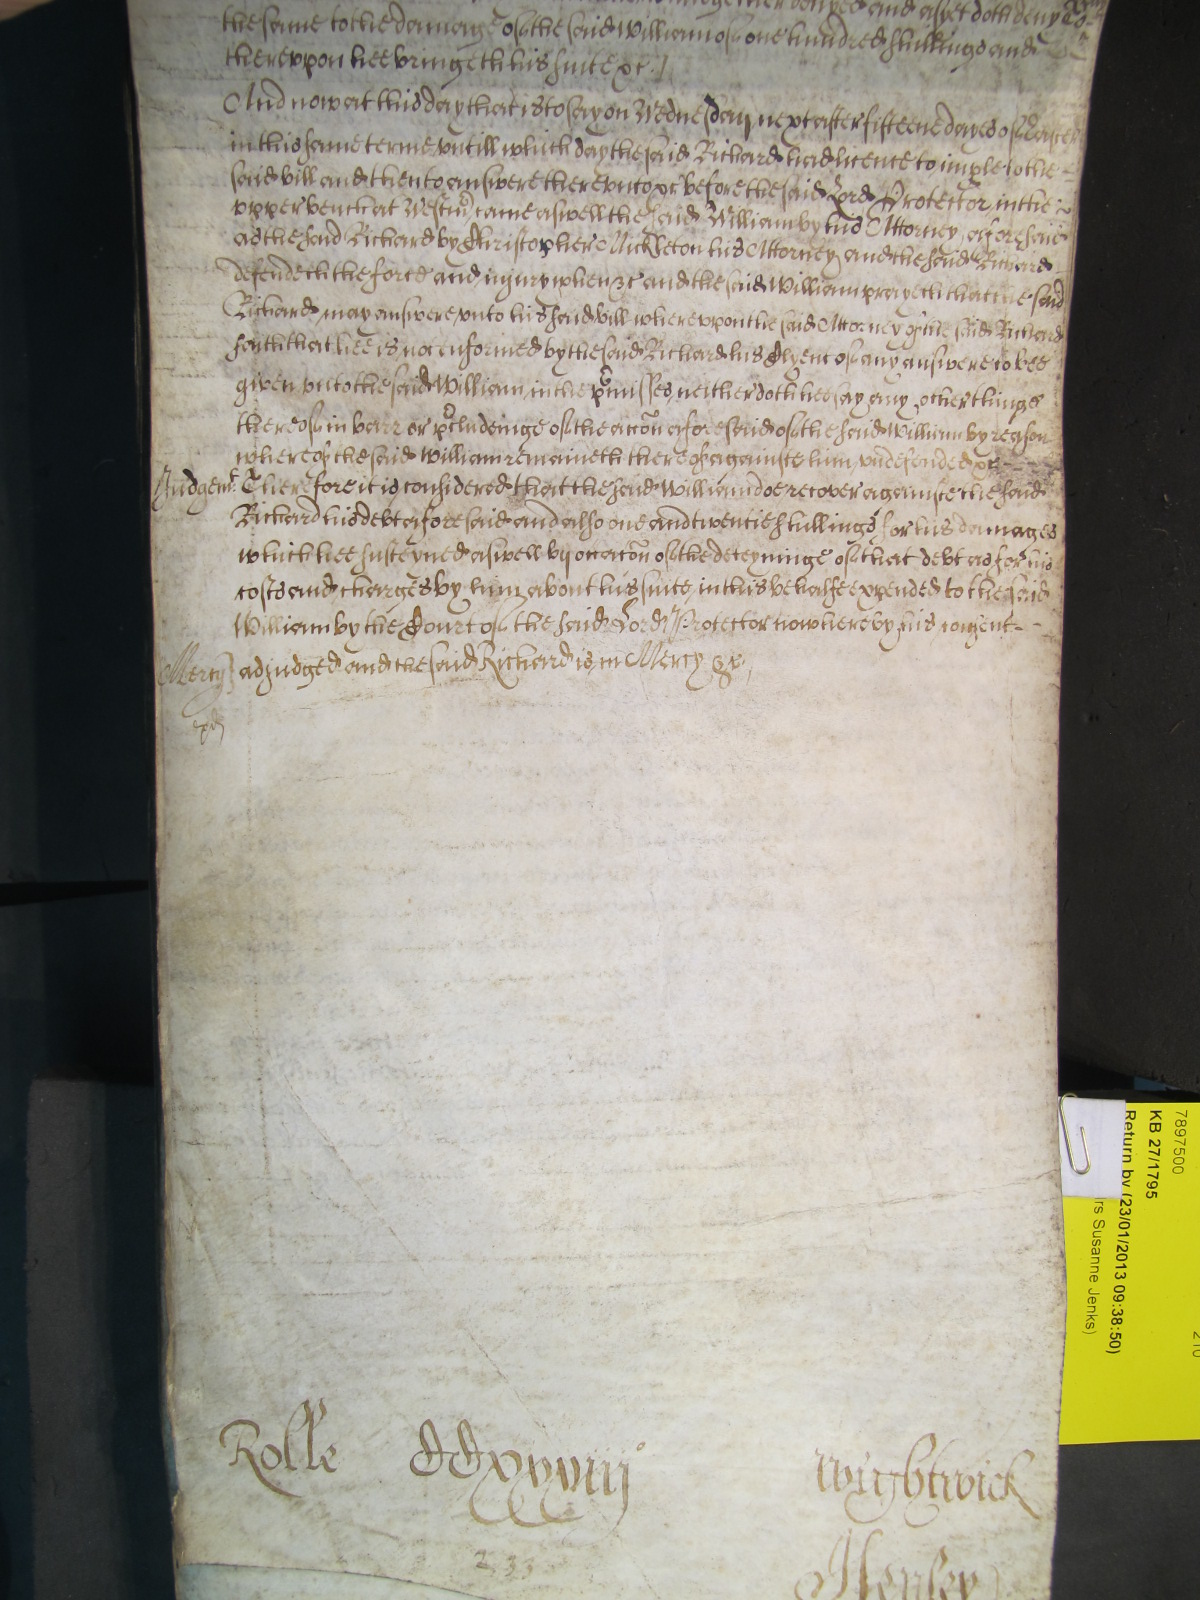 the same to the damage of the said William of one hundred shillings and
thereupon hee bringeth his suite &c.
And now at this day that is to say on Wednesday next after fifteene dayes of Easter
in this same terme untill which day the said Richard had licence to imple to the
said bill and then to answere thereunto &c before the said Lord Protector, in the
upper bench at Westm̃ came aswell the said William by his Attorney aforesaid
as the said Richard by Christopher Nickleton his Attorney and the said Richard
defendeth the force and injury when &c and the said William prayeth that the said
Richard, may answere unto his said bill whereupon the said Attorney of the said Richard
saith that hee is not informed by the said Richard his Clyent of any answere to bee
given unto the said William, in the p̃misses, neither doth hee say any other thinge
thereof in barr or p̃cludeinge of the accõn aforesaid of the said William by reason
whereof the said William remaineth thereof againste him, undefended &c
Judgemt. Therefore it is considered that the said William doe recover againste the said
Richard his debt aforesaid and also one and twentie shillings for his damages
which hee susteyned aswell by occacõn of the deteyninge of that debt as for his
costs and charges by him about his suite, in this behalfe expended to the said
William by the Court of the said Lord Protector now here by his consent
Mercy adjudged and the said Richard is, in Mercy &c.
Rolle CCxxxiijº Wightwick
233
Henley
7897500
KB 27/1795
Return by (23/01/2013 09:38:50)
rs Susanne Jenks)
210